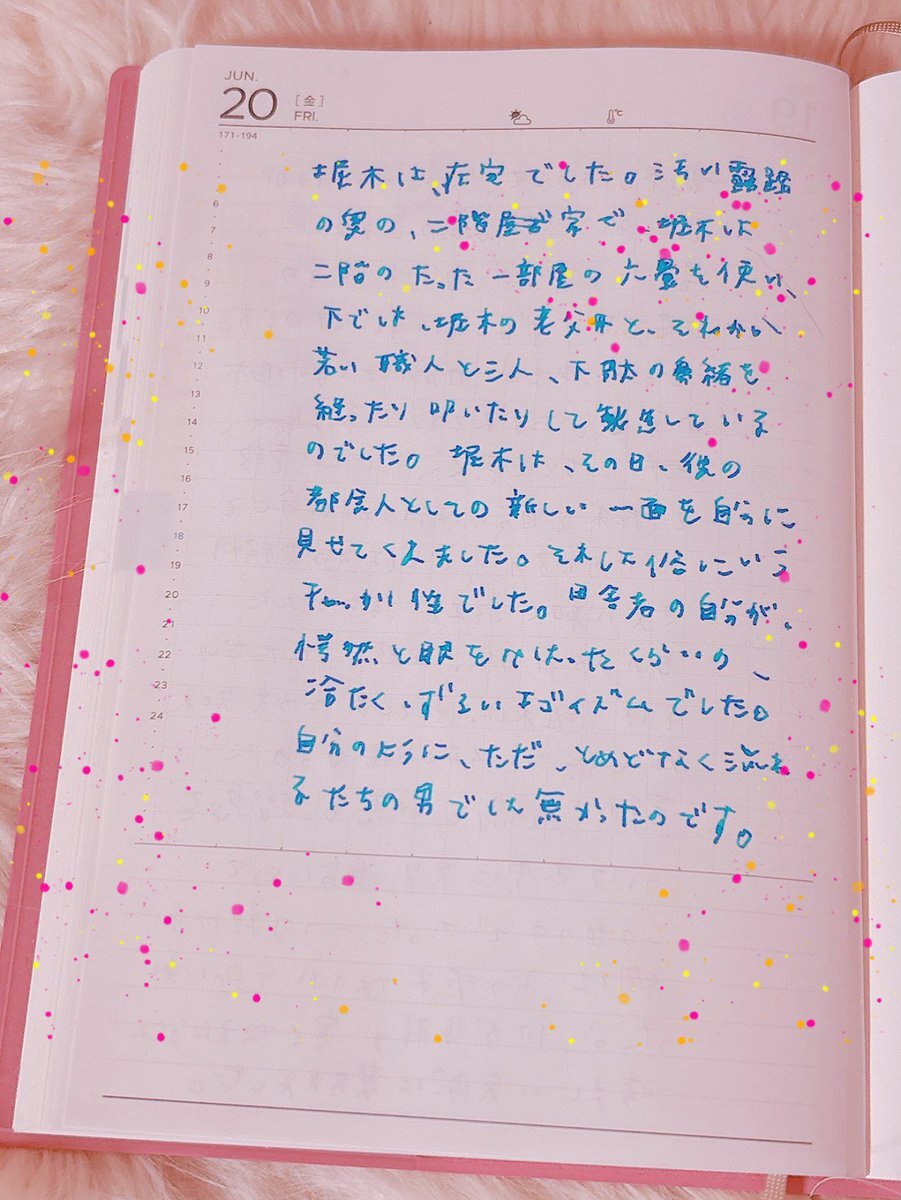 JUN.
20 [金] FRI.
171-194
6
7
8
9
10
11
12
13
14
15
16
17
18
19
20
21
22
23
24
堀木は、在宅でした。汚い露路
の奥の、二階家で、堀木は
二階のたった一部屋の六畳を使い、
下では、堀木の老父母と、それから
若い職人と三人、下駄の鼻緒を
縫ったり叩いたりして製造している
のでした。堀木は、その日、彼の
都会人としての新しい一面を自分に
見せてくれました。それは俗にいう
ちゃっかり性でした。田舎者の自分が、
愕然と眼をみはったくらいの、
冷たく、ずるいエゴイズムでした。
自分のように、ただ、とめどなく流れ
るたちの男では無かったのです。